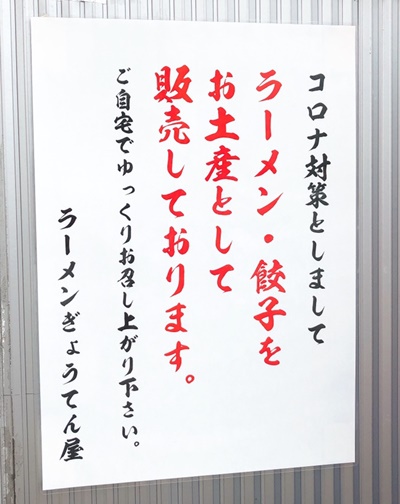 コロナ対策としまして
ラーメン・餃子を
お土産として
販売しております。
ご自宅でゆっくりお召し上がり下さい。
ラーメンぎょうてん屋